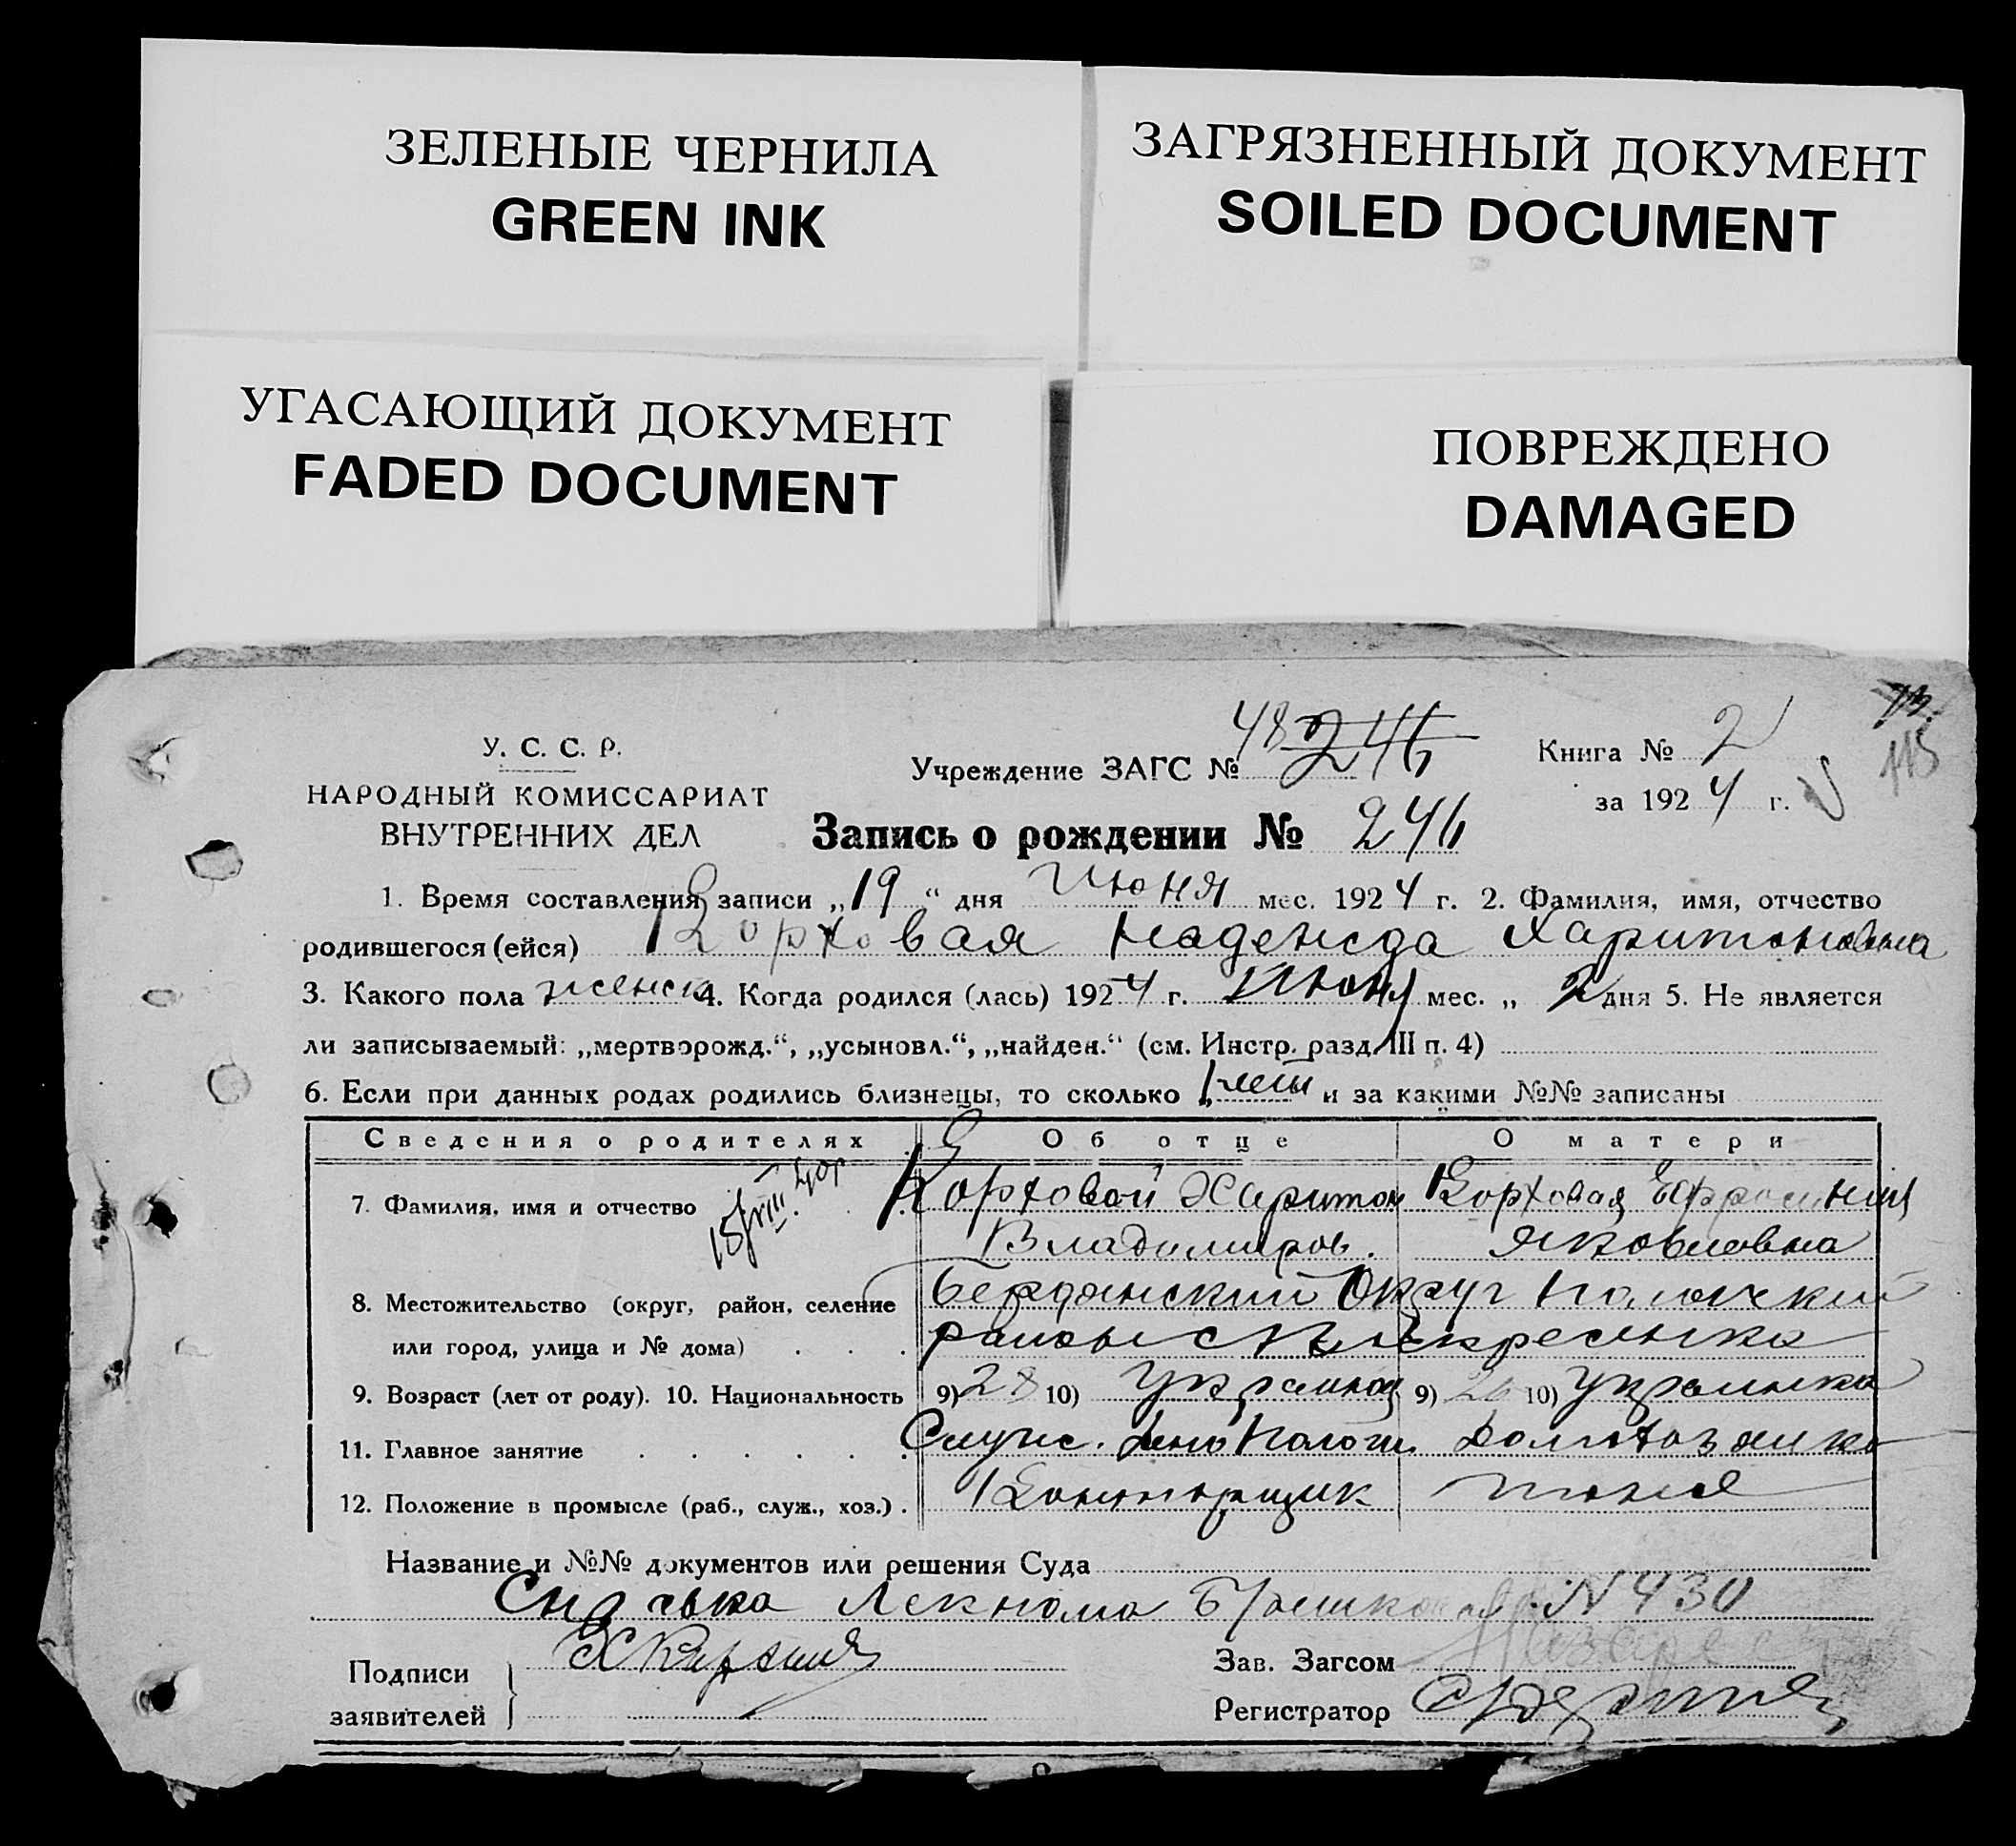 ЗЕЛЕНЫЕ ЧЕРНИЛА
GREEN INK
ЗАГРЯЗНЕННЫЙ ДОКУМЕНТ
SOILED DOCUMENT
УГАСАЮЩИЙ ДОКУМЕНТ
FADED DOCUMENT
ПОВРЕЖДЕНО
DAMAGED
115
У. С. С. Р.
НАРОДНЫЙ КОМИССАРИАТ
ВНУТРЕННИХ ДЕЛ
Учреждение ЗАГС № 48 246
Книга № 2
за 1924 г.
Запись о рождении № 246
1. Время составления записи „19“ дня Июня мес. 1924 г. 2. Фамилия, имя, отчество
родившегося (ейся) Корховая Надежда Харитоновна
3. Какого пола женск 4. Когда родился (лась) 1924 г. Июня мес. „ 2 дня 5. Не является
ли записываемый: „мертворожд.“, „усыновл.“, „найден.“ (см. Инстр. разд. III п. 4)
6. Если при данных родах родились близнецы, то сколько нет и за какими №№ записаны
Сведения о родителях Об отце О матери
7. Фамилия, имя и отчество Корховой Харитон Корховая Ефросиния
Владимиров. Яковлевна
8. Местожительство (округ, район, селение Бердянский Округ Пологский
или город, улица и № дома) район с Воскресенка
9. Возраст (лет от роду). 10. Национальность 9) 28 10) Украинец 9) 26 10) Украинка
11. Главное занятие Служ. Депо Пологи Домохозяйка
12. Положение в промысле (раб., служ., хоз.) Конторщик тоже
Название и №№ документов или решения Суда
Справка Лекпома N 430
Подписи
заявителей
Зав. Загсом
Регистратор